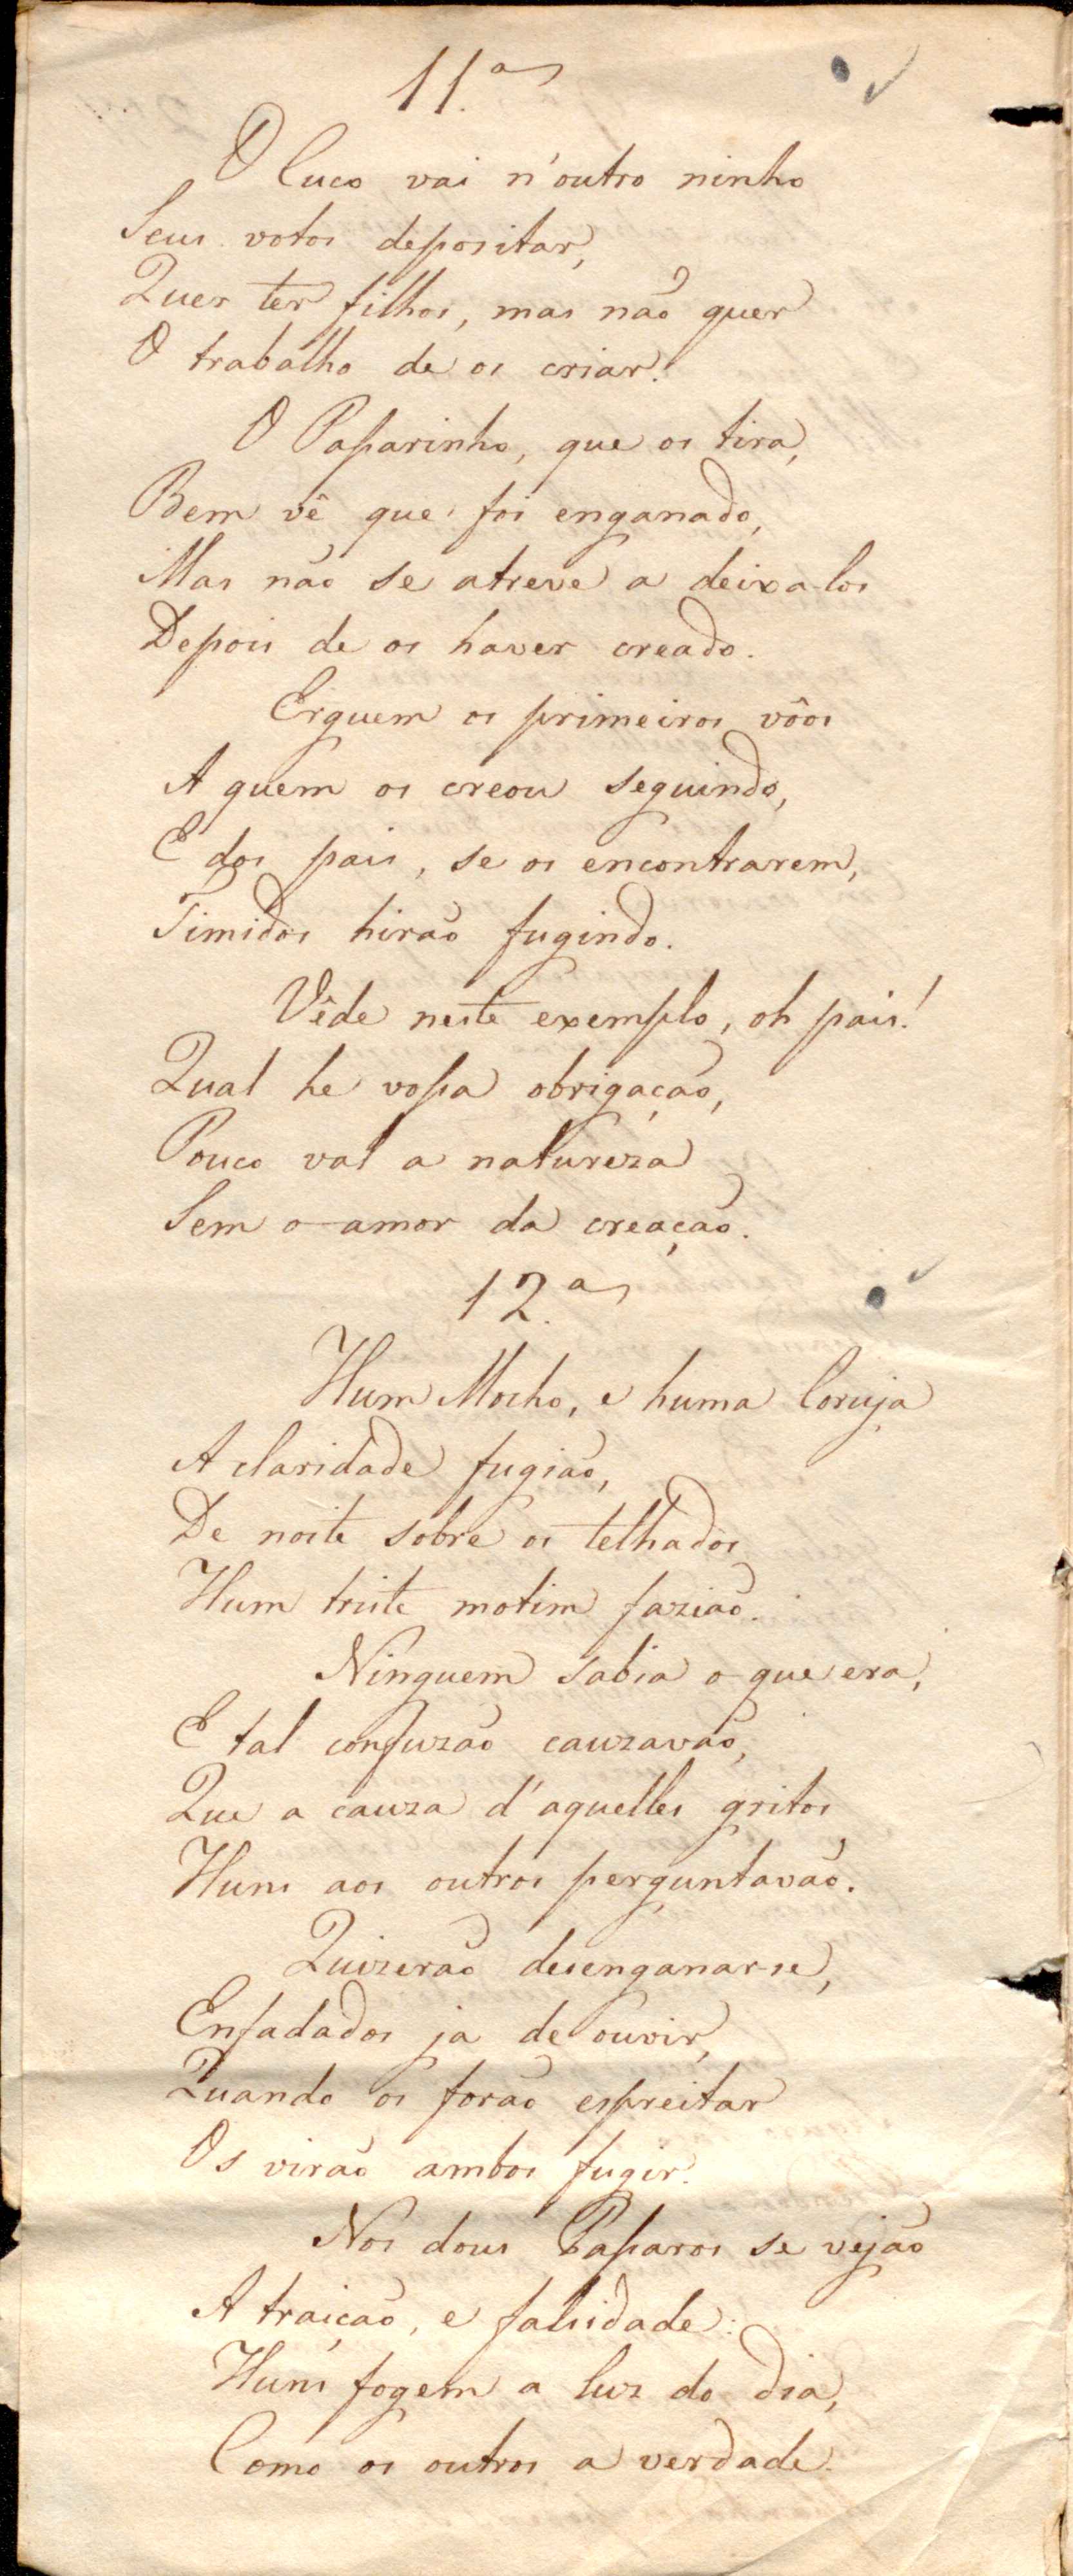 11.ª
O Cuco vai n'outro ninho
Seus votos depositar,
Quer ter filhos, mas não quer
O trabalho de os criar.
O Passarinho, que os tira,
Bem vê que foi enganado,
Mas não se atreve a deixa-los
Depois de os haver creado.
Erguem os primeiros vôos
A quem os creou seguindo,
E dos pais, se os encontrarem,
Timidos hirão fugindo.
Vêde neste exemplo, oh pais!
Qual he vossa obrigação,
Pouco val a natureza
Sem o amor da creação.
12.ª
Hum Mocho, e huma Coruja
A claridade fugião,
De noite sobre os telhados
Hum triste motim fazião.
Ninguem sabia o que era,
E tal confuzão cauzavão,
Que a cauza d'aquelles gritos
Huns aos outros perguntavão.
Quizerão desenganar-se,
Enfadados ja de ouvir,
Quando os forão espreitar
Os virão ambos fugir.
Nos dous Passaros se vejão
A traição, e falsidade:
Huns fogem a luz do dia,
Como os outros a verdade.